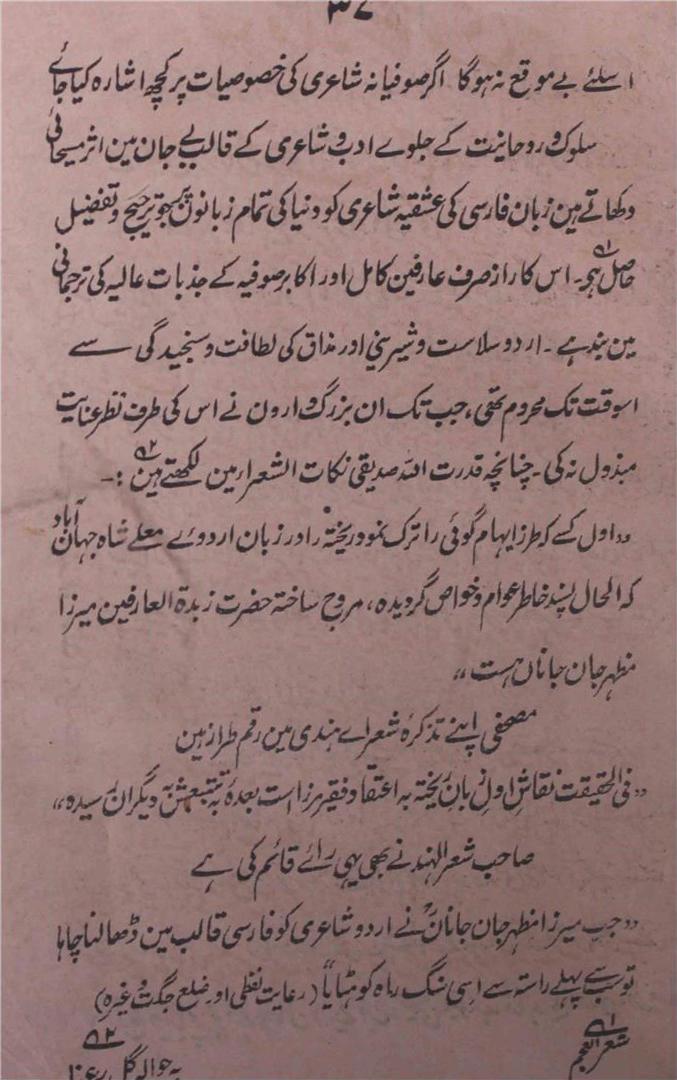 ۳۷
اسلئے بے موقع نہ ہوگا اگر صوفیانہ شاعری کی خصوصیات پر کچھ اشارہ کیا جائے
سلوک و روحانیت کے جلوے ادب و شاعری کے قالب بے جان مین اثر مسیحائی
دکھاتے مین زبان فارسی کی عشقیہ شاعری کو دنیا کی تمام زبانون پر جو ترجیح و تفضیل
حاصل ہی۔ اس کا راز صرف عارفین کامل اور اکابر صوفیہ کے جذبات عالیہ کی ترجمانی
مین بند ہے ۔ اردو سلاست و شیرینی اور مذاق کی لطافت و سنجیدگی سے
اسوقت تک محروم تھی، جب تک ان بزرگوارون نے اس کی طرف نظر عنایت
مبذول نہ کی۔ چنانچہ قدرت اللہ صدیقی نکات الشعراء مین لکھتے مین ؎۲ :-
،،اول کسے کہ طرز ایہام گوئی را ترک نمود ریختہ را در زبان اردوے معلے شاہ جہان آباد
کہ الحال پسند خاطر عوام و خواص گردیدہ، مروج ساختہ حضرت زبدۃ العارفین میرزا
مظہر جان جاناں ہست ،،
مصحفی اپنے تذکرۂ شعراے ہندی مین رقم طراز مین
،،فی الحقیقت نقاش اول زبان ریختہ بہ اعتقاد فقیر مرزا است بعدہٗ بہ تتبعش بہ دیگران رسیدہ،،
صاحب شعر الہند نے بھی یہی رائے قائم کی ہے
،،جب میرزا مظہر جان جانانؒ نے اردو شاعری کو فارسی قالب مین ڈھالنا چاہا
تو سب سے پہلے راستہ سے اسی سنگ راہ کو ہٹایا (رعایت لفظی اور ضلع جگت وغیرہ)
؎۱ شعر العجم
؎۲ بہ حوالہ گل رعنا